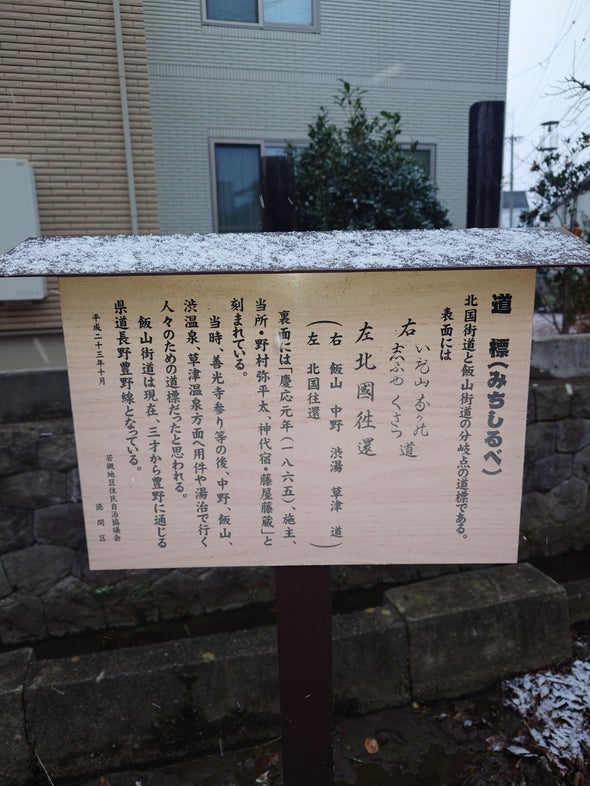 道標(みちしるべ)
北国街道と飯山街道の分岐点の道標である。
表面には
右 いゐ山 なかの 志ふゆ くさつ 道
左 北國徃還
(右 飯山 中野 渋湯 草津 道)
(左 北国往還)
裏面には「慶応元年(一八六五)、施主、
当所・野村弥平太、神代宿・藤屋藤蔵」と
刻まれている。
当時、善光寺参り等の後、中野、飯山、
渋温泉、草津温泉方面へ用件や湯治で行く
人々のための道標だったと思われる。
飯山街道は現在、三才から豊野に通じる
県道長野豊野線となっている。
平成二十三年十月
若槻地区住民自治協議会
徳間区